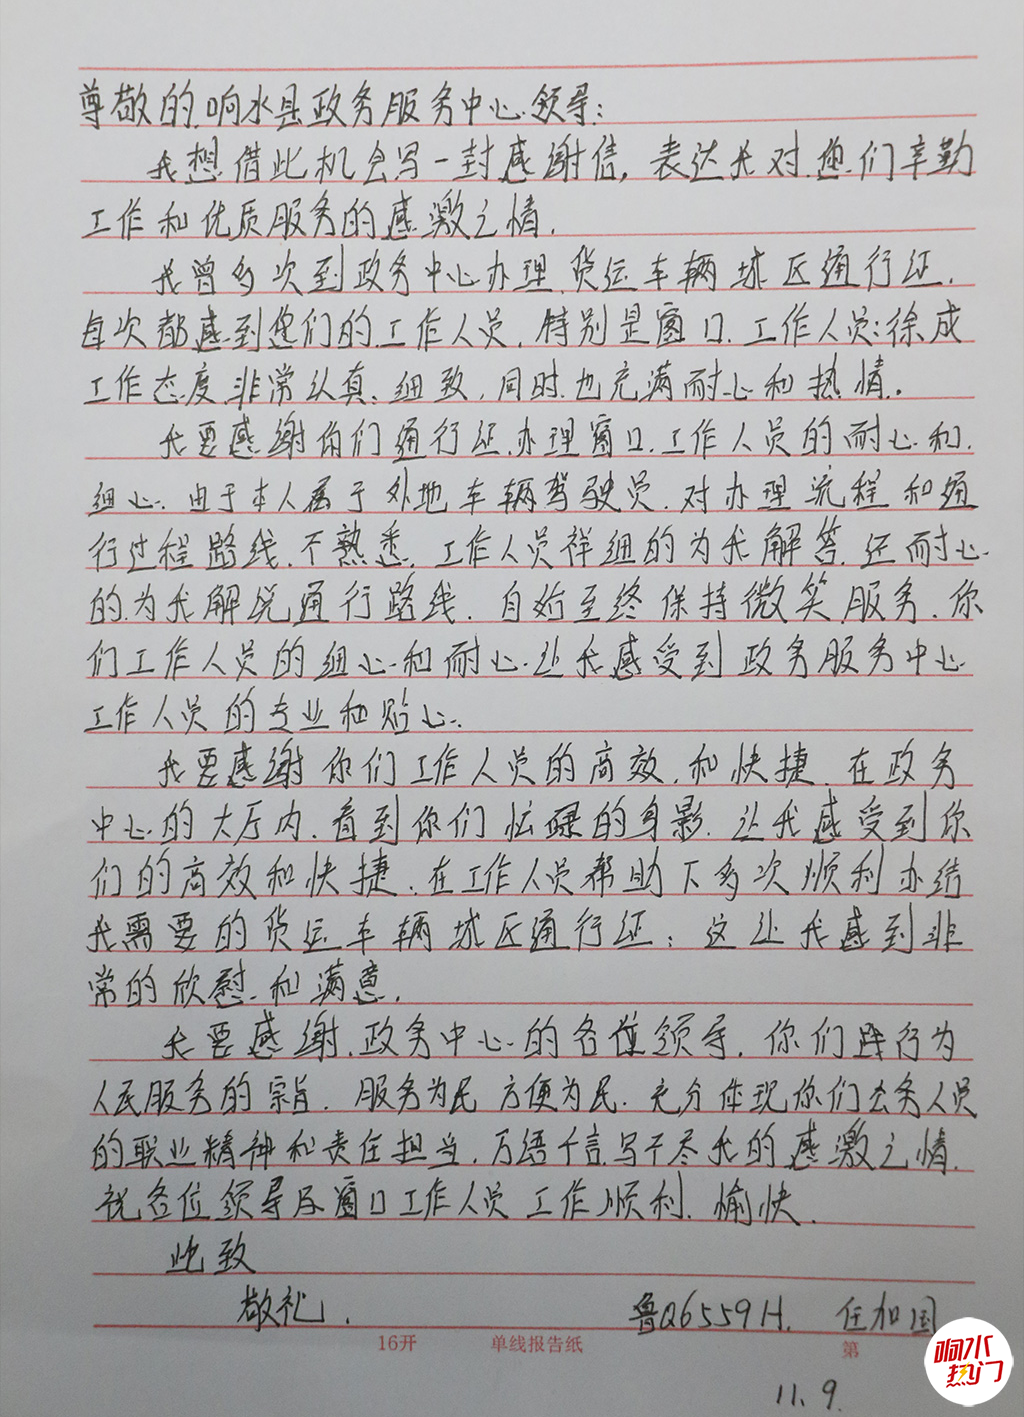 尊敬的响水县政务服务中心领导：
我想借此机会写一封感谢信，表达我对您们辛勤
工作和优质服务的感激之情．
我曾多次到政务中心办理货运车辆城区通行证．
每次都感到您们的工作人员．特别是窗口．工作人员：徐成
工作态度非常认真、细致，同时也充满耐心和热情。
我要感谢你们通行证办理窗口工作人员的耐心和
细心．由于本人属于外地车辆驾驶员．对办理流程和通
行过程路线．不熟悉．工作人员祥细的为我解答．还耐心
的为我解说通行路线．自始至终保持微笑服务．你
们工作人员的细心和耐心．让我感受到政务服务中心
工作人员的专业和贴心．
我要感谢你们工作人员的高效．和快捷．在政务
中心的大厅内．看到你们忙碌的身影．让我感受到你
们的高效和快捷．在工作人员帮助下多次顺利办结
我需要的货运车辆城区通行证；这让我感到非
常的欣慰和满意．
我要感谢．政务中心的各位领导．你们践行为
人民服务的宗旨．服务为民方便为民．充分体现你们公务人员
的职业精神和责任担当．万语千言写不尽我的感激之情．
祝各位领导及窗口工作人员工作顺利．愉快．
此致
敬礼．
鲁Q6559H. 任加国
16开 单线报告纸 第
响水热门
11.9.